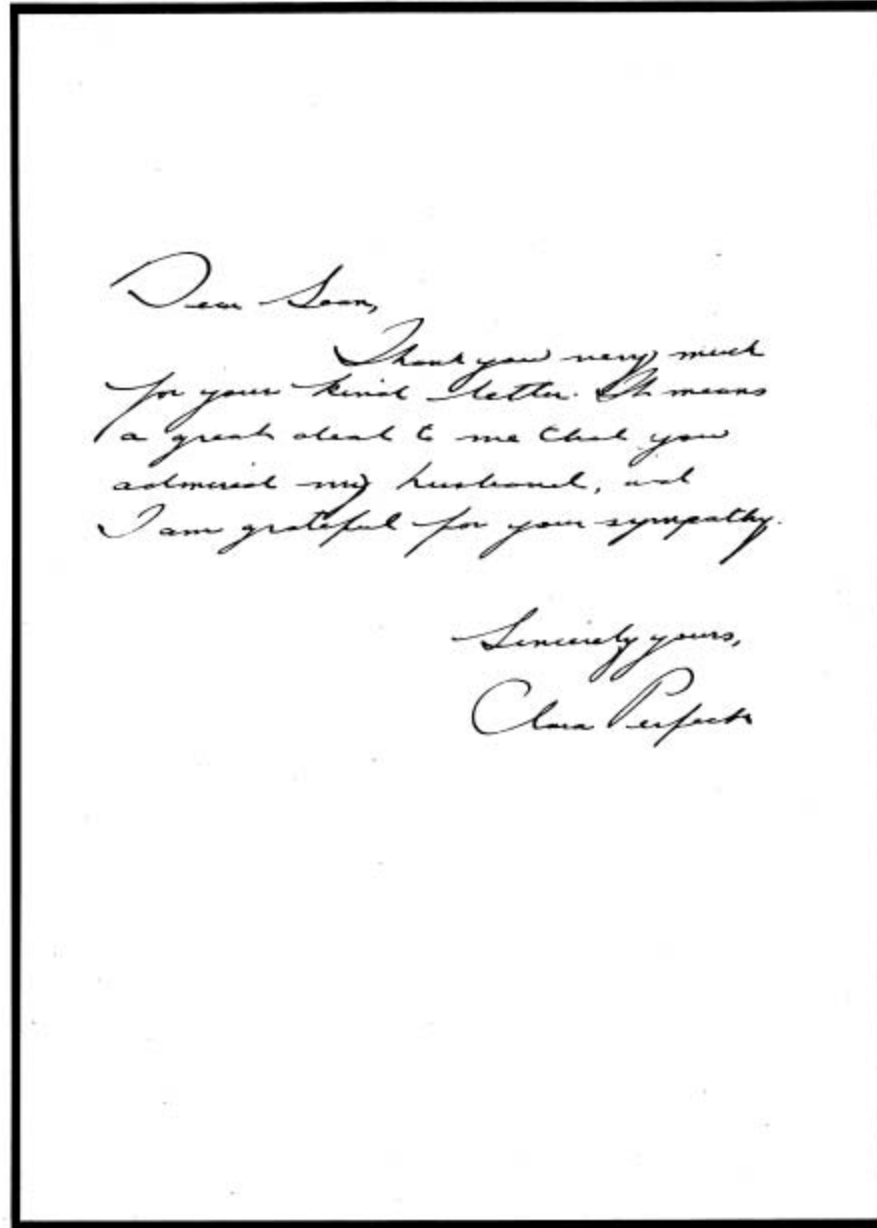 Dear Sean,
Thank you very much
for your kind letter. It means
a great deal to me that you
admired my husband, and
I am grateful for your sympathy.
Sincerely yours,
Clara Perfect